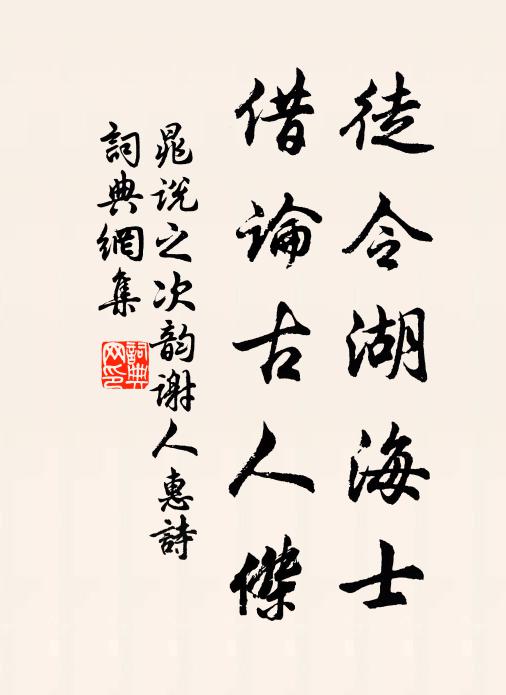 徒令湖海士
借論古人傑
晁说之次韵谢人惠詩
詞典網集
詞典网印